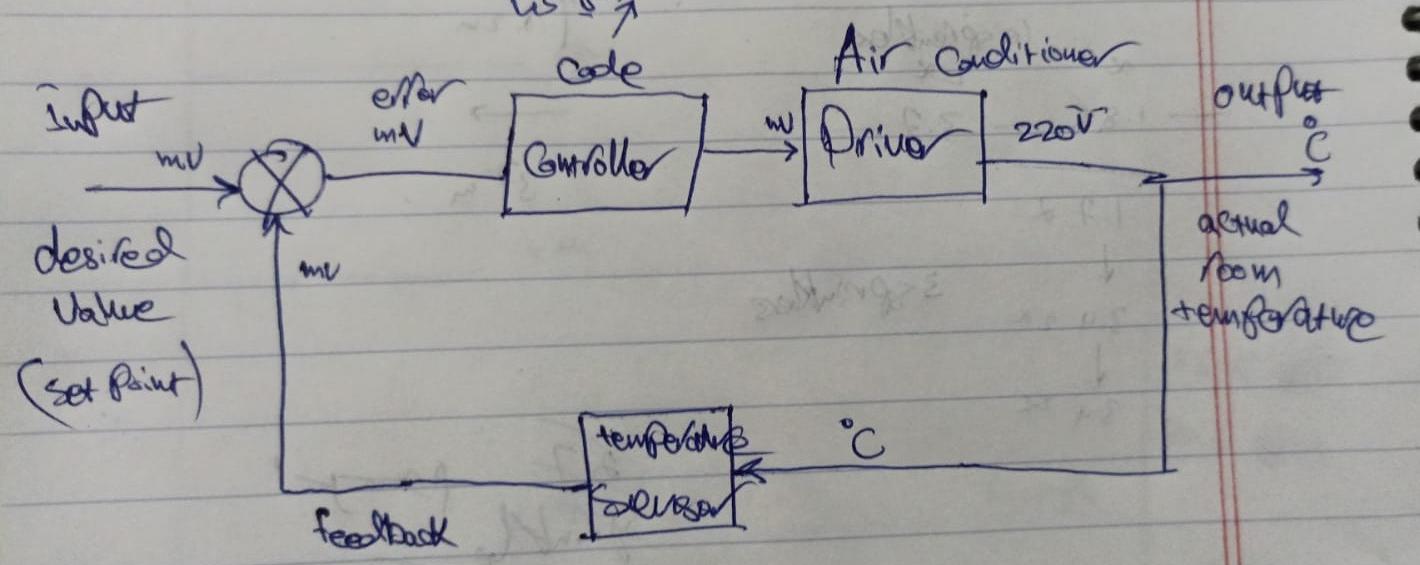 Code
Air Conditioner
Input
error
output
mV
mV
Controller
mV
Driver
220V
°C
desired
Value
(set Point)
mV
actual
room
temperature
temperature
sensor
°C
feedback